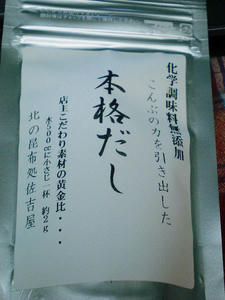 化学調味料無添加
こんぶの力を引き出した
本格だし
店主こだわり素材の黄金比・・・
水500gに小さじ一杯 約2g
北の昆布処佐吉屋